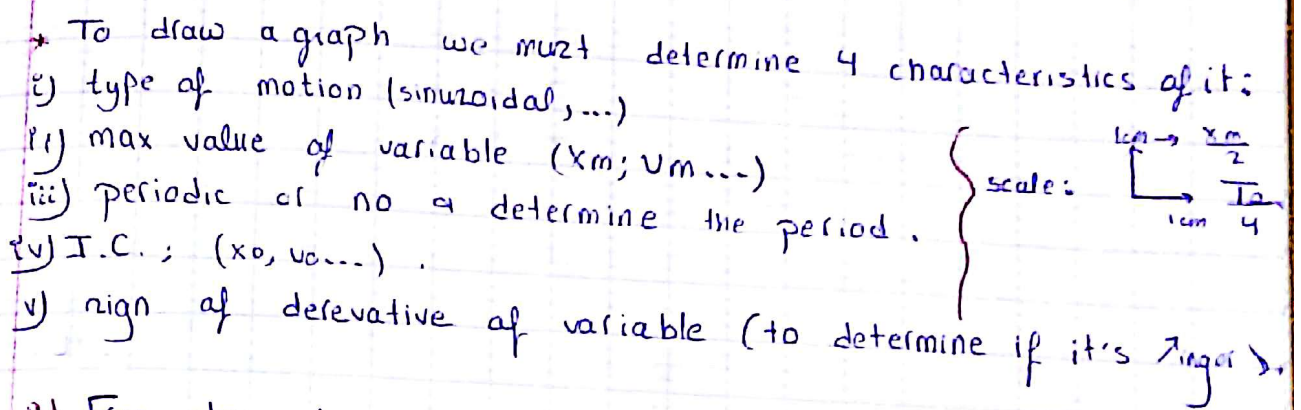 * To draw a graph we must determine 4 characteristics of it:
i) type of motion (sinusoidal, ...)
ii) max value of variable (Xm; Vm...)
iii) periodic or no a determine the period.
iv) I.C.; (x0, v0...).
v) sign of derevative of variable (to determine if it's ↗ing or ↘).
scale: 1cm → Xm/2
1cm T0/4